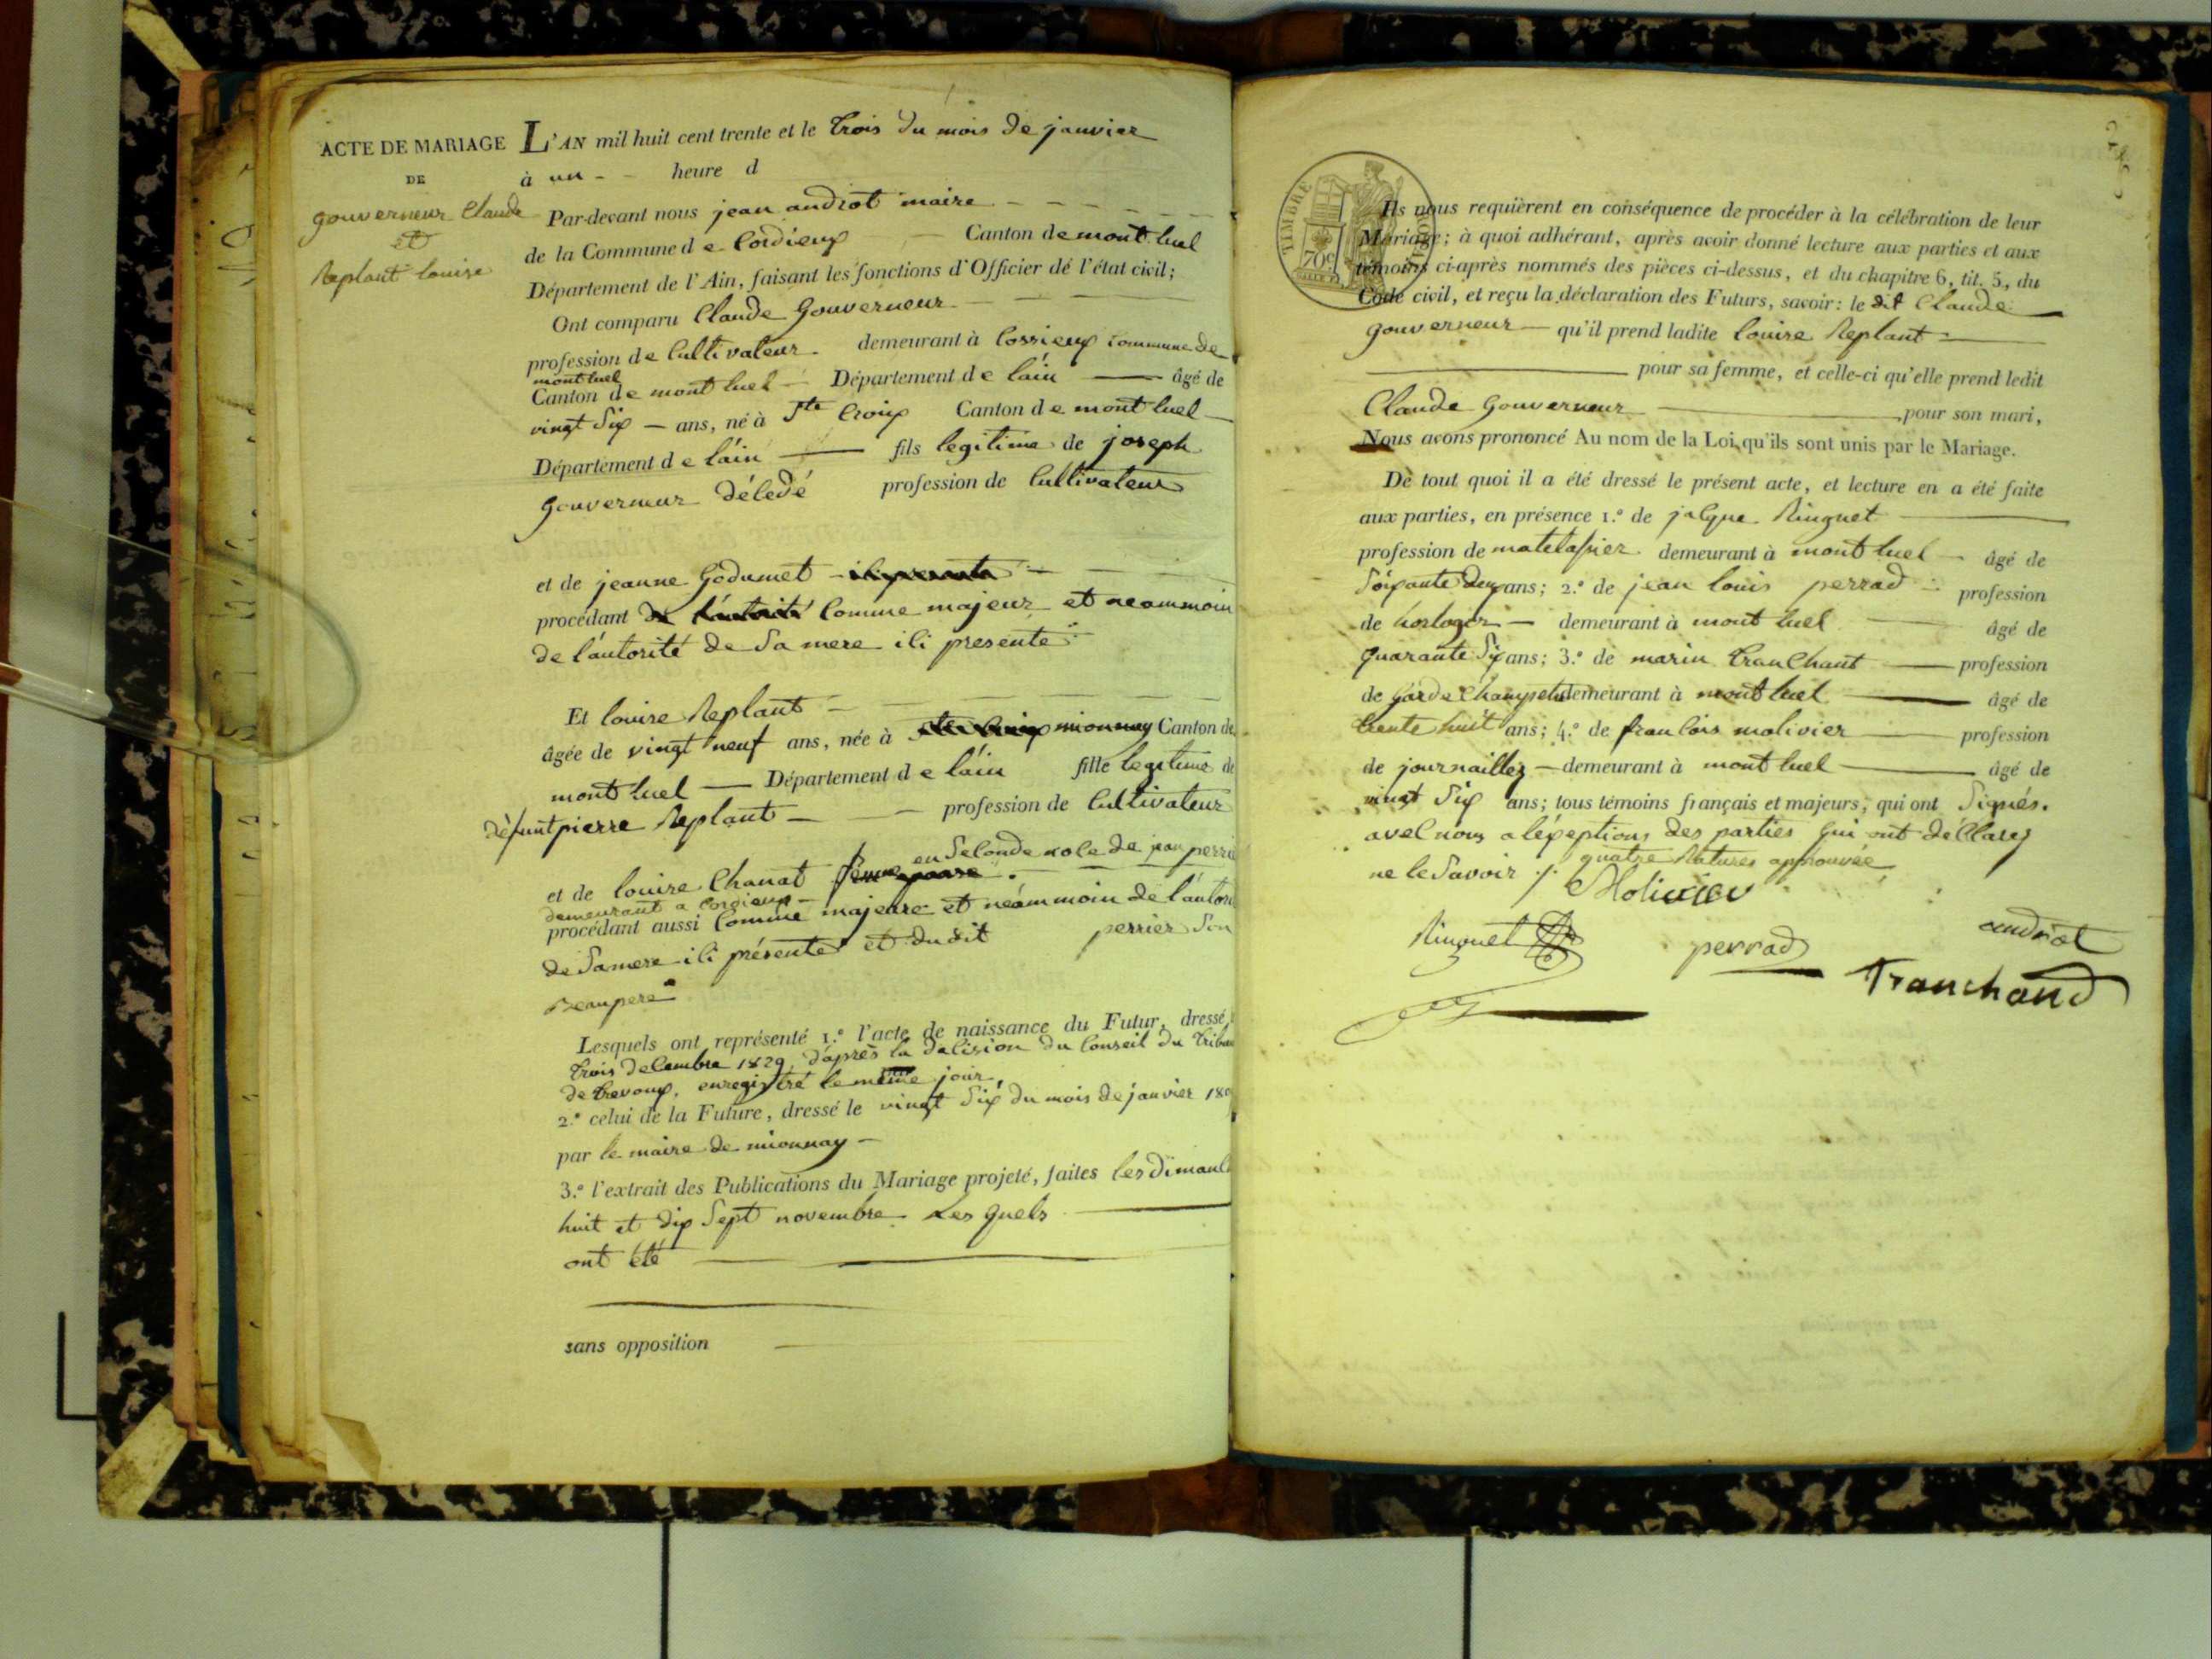 ACTE DE MARIAGE
DE
gouverneur Claude
et
Replant louise
L'AN mil huit cent trente et le trois du mois de janvier
à un heure d
Par-devant nous jean andriot maire
de la Commune de Cordieux Canton de mont luel
Département de l'Ain, faisant les fonctions d'Officier de l'état civil;
Ont comparu Claude Gouverneur
profession de Cultivateur demeurant à Cossieux commune de
montluel
Canton de mont luel Département de l'ain âgé de
vingt six ans, né à Ste Croix Canton de mont luel
Département de l'ain fils legitime de joseph
gouverneur décédé profession de Cultivateur
et de jeanne Godumet
procédant Comme majeur et neammoin
de l'autorité de sa mere ici presente
Et louise Replant
âgée de vingt neuf ans, née à mionnay Canton de
mont luel Département de l'ain fille legitime de
défunt pierre Replant profession de Cultivateur
en seconde noce de jean
et de louise Chanat
demeurant a Cordieux
procédant aussi Comme majeure et neammoin de
de sa mere ici présente et du dit perrier son
Beaupere
Lesquels ont représenté 1.° l'acte de naissance du Futur, dressé
trois decembre 1829, d'après la décision du Conseil du
de trevoux, enregistré le même jour,
2.° celui de la Future, dressé le vingt six du mois de janvier
par le maire de mionnay
3.° l'extrait des Publications du Mariage projeté, faites les
huit et dix sept novembre Les quels
ont été
sans opposition
TIMBRE ROYAL
70c
Ils nous requièrent en conséquence de procéder à la célébration de leur
Mariage; à quoi adhérant, après avoir donné lecture aux parties et aux
témoins ci-après nommés des pièces ci-dessus, et du chapitre 6, tit. 5, du
Code civil, et reçu la déclaration des Futurs, savoir: le dit Claude
gouverneur qu'il prend ladite louise Replant
pour sa femme, et celle-ci qu'elle prend ledit
Claude Gouverneur pour son mari,
Nous avons prononcé Au nom de la Loi, qu'ils sont unis par le Mariage.
De tout quoi il a été dressé le présent acte, et lecture en a été faite
aux parties, en présence 1.° de jacque Ringuet
profession de matelassier demeurant à mont luel âgé de
soixante deux ans; 2.° de jean louis perrad profession
de horloger demeurant à mont luel âgé de
quarante six ans; 3.° de marin tranchant profession
de garde champetre demeurant à mont luel âgé de
trente huit ans; 4.° de francois molivier profession
de journaillez demeurant à mont luel âgé de
vingt six ans; tous témoins français et majeurs, qui ont signés.
avec nous a l'exeptions des parties qui ont déclarez
ne le savoir ./. quatre Ratures approuvée
Molivier
Ringuet perrad andriot
Tranchand